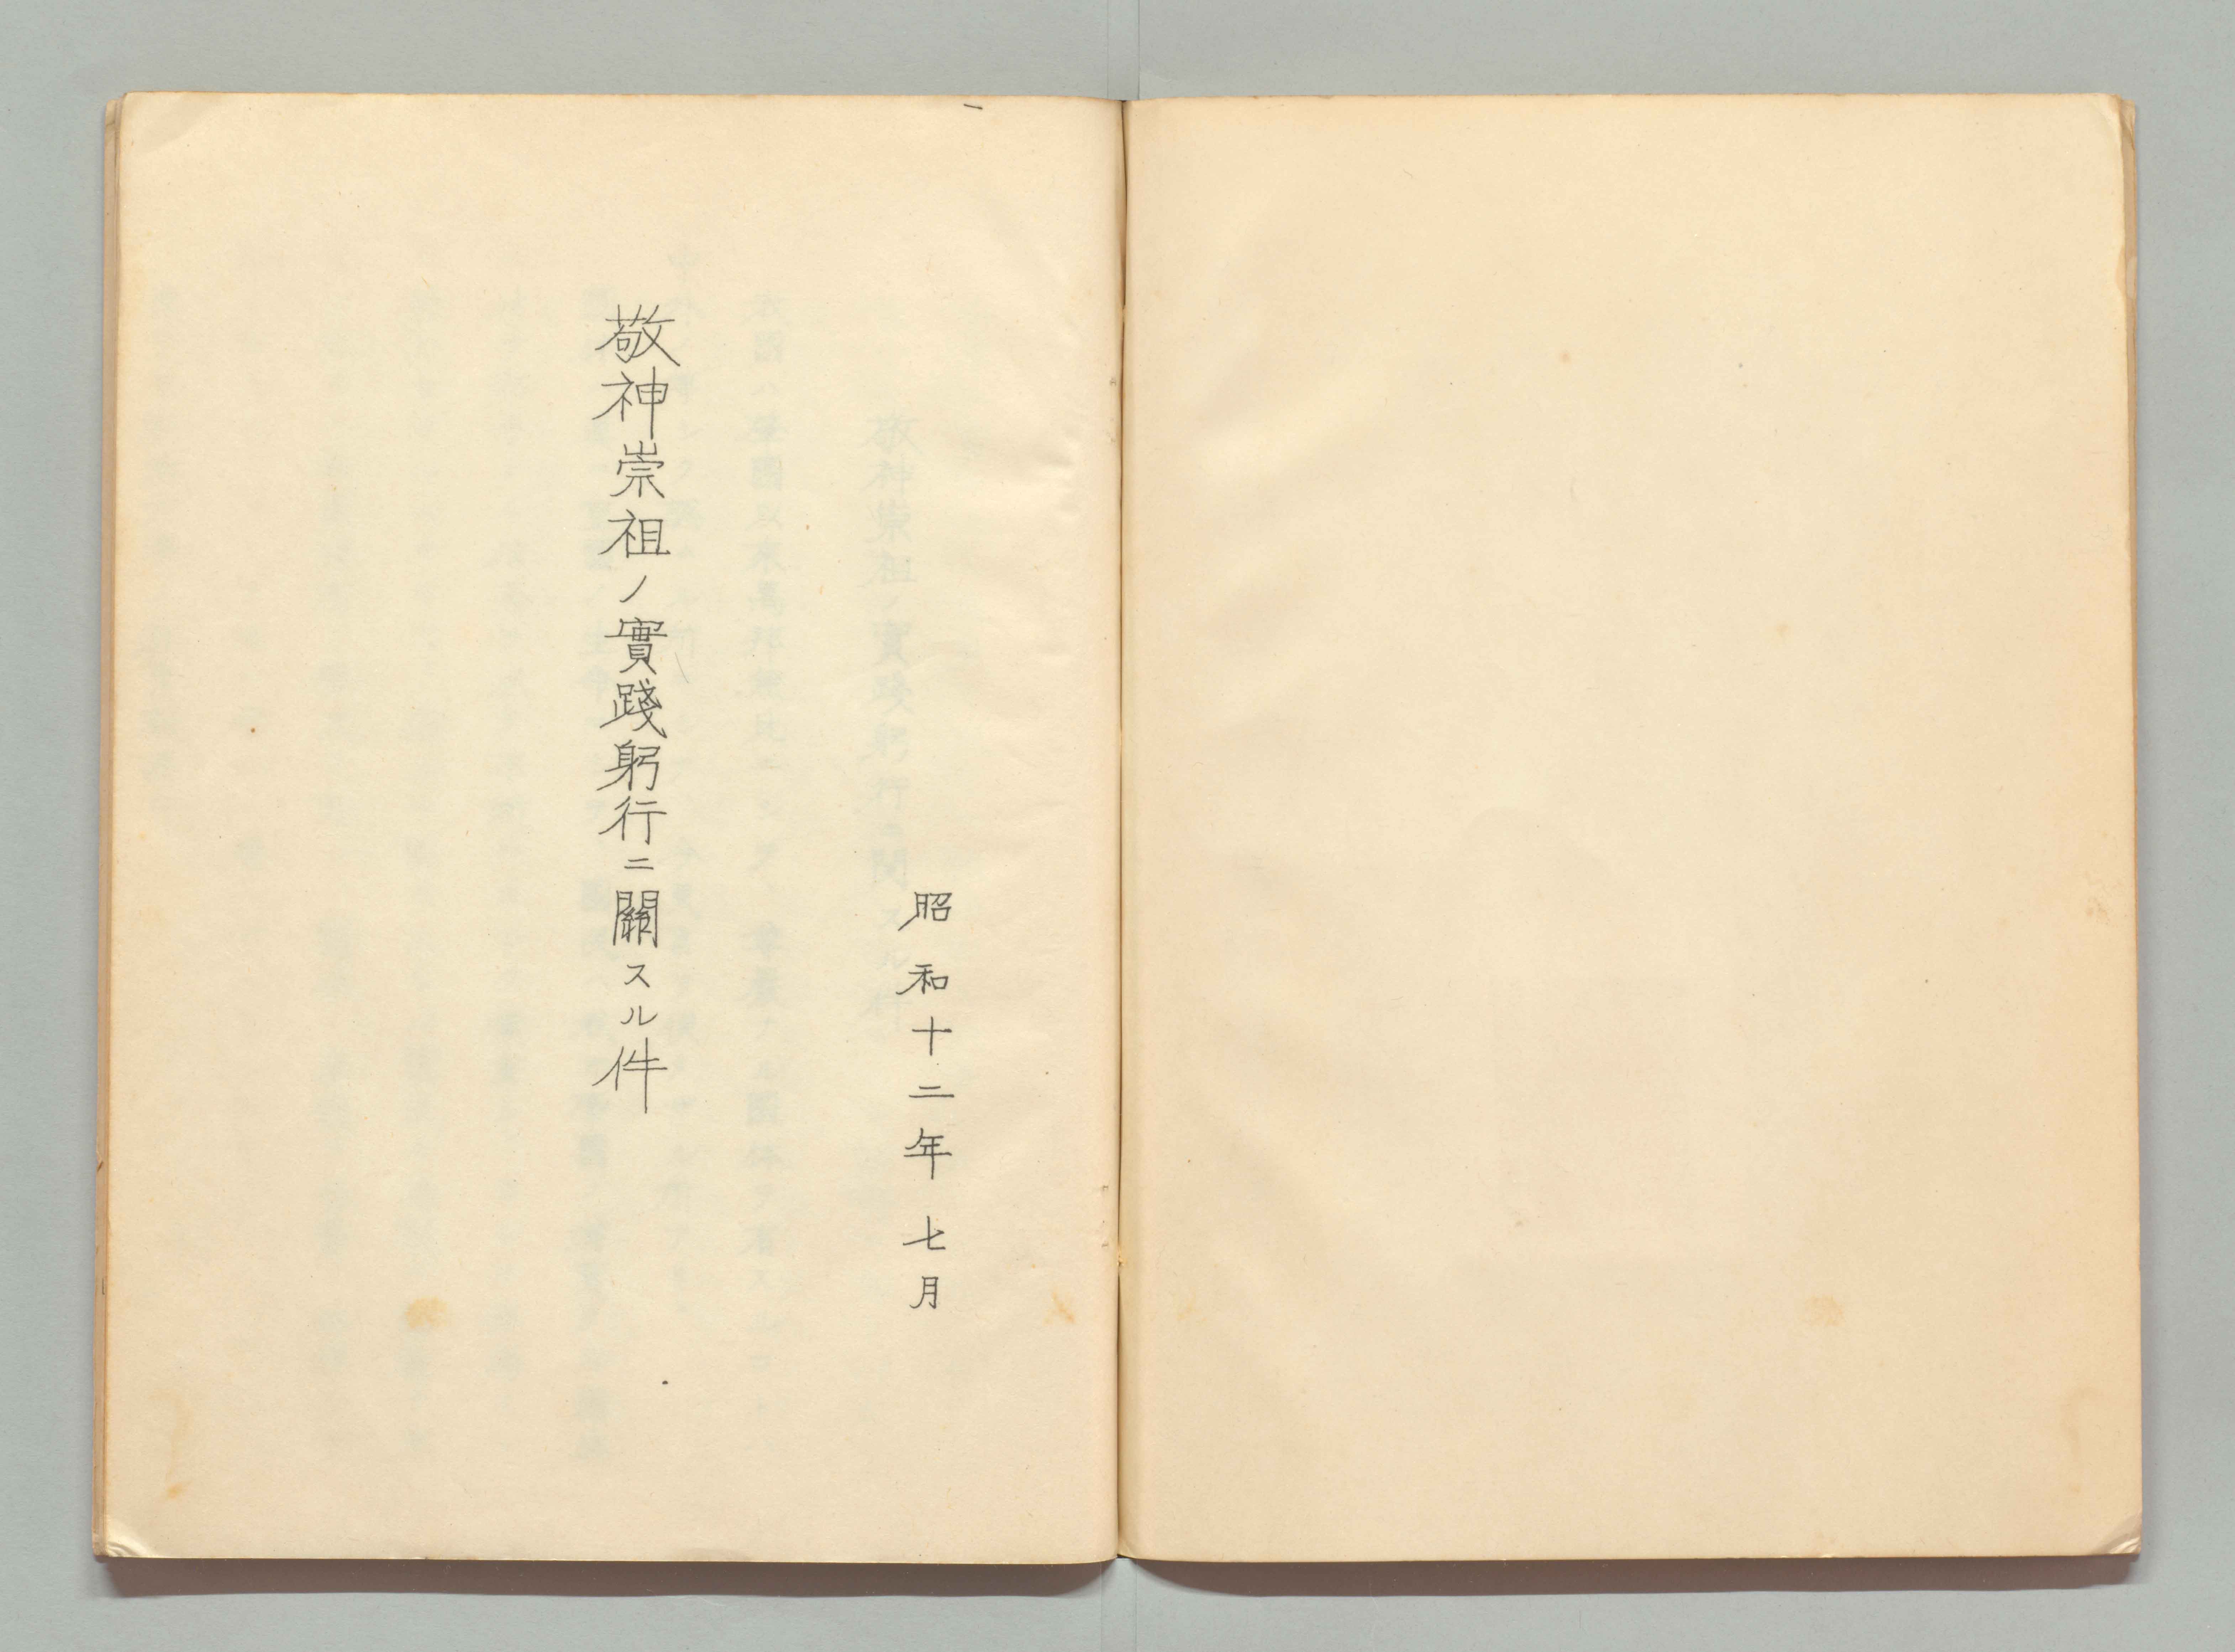 昭和十二年七月
敬神崇祖ノ實踐躬行ニ關スル件